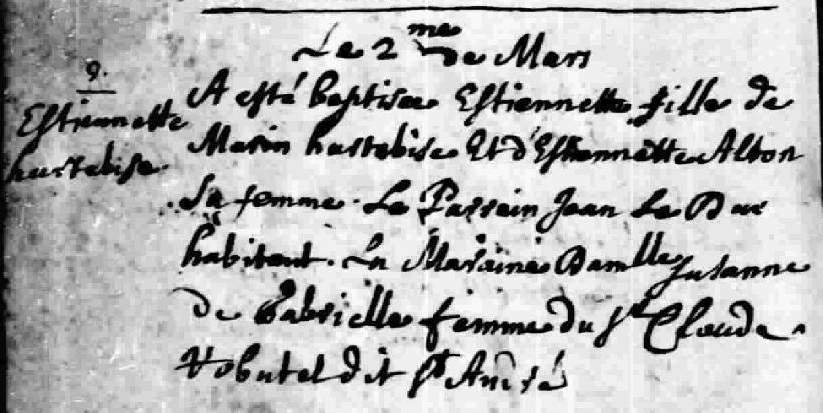 Le 2me de Mars
9.
Estiennette
hurtebise.
A esté baptisée Estiennette fille de
Marin hurtebise Et d'Estiennette Alton
Sa femme. Le Parrain Jean Le Duc
habitant. La Maraine Damlle Susanne
de Gabrielle femme du Sr Claude
Robutel dit St André